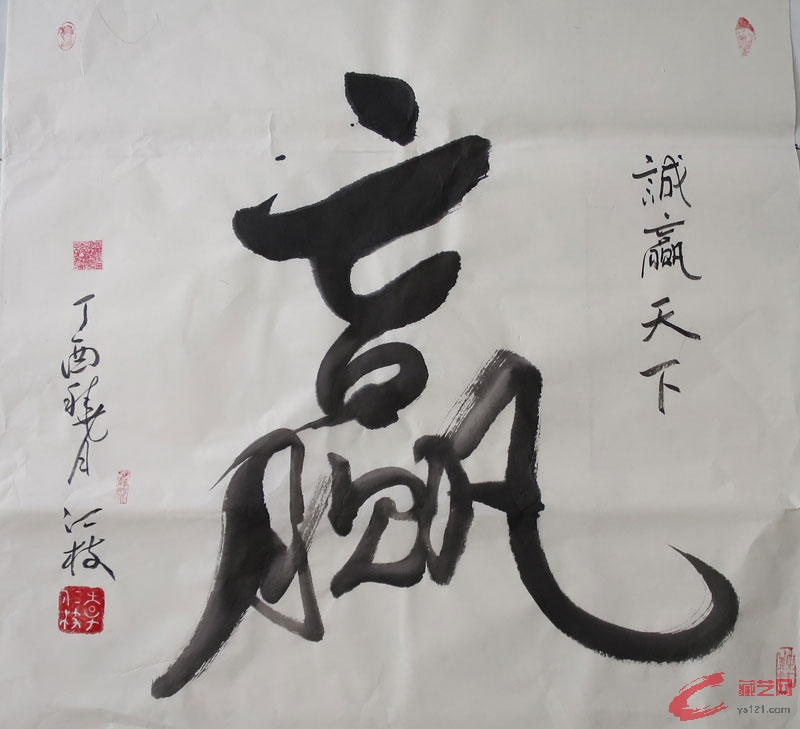 誠贏天下
贏
丁酉秋月
仁枝
李仁枝
藏艺网
ys121.com